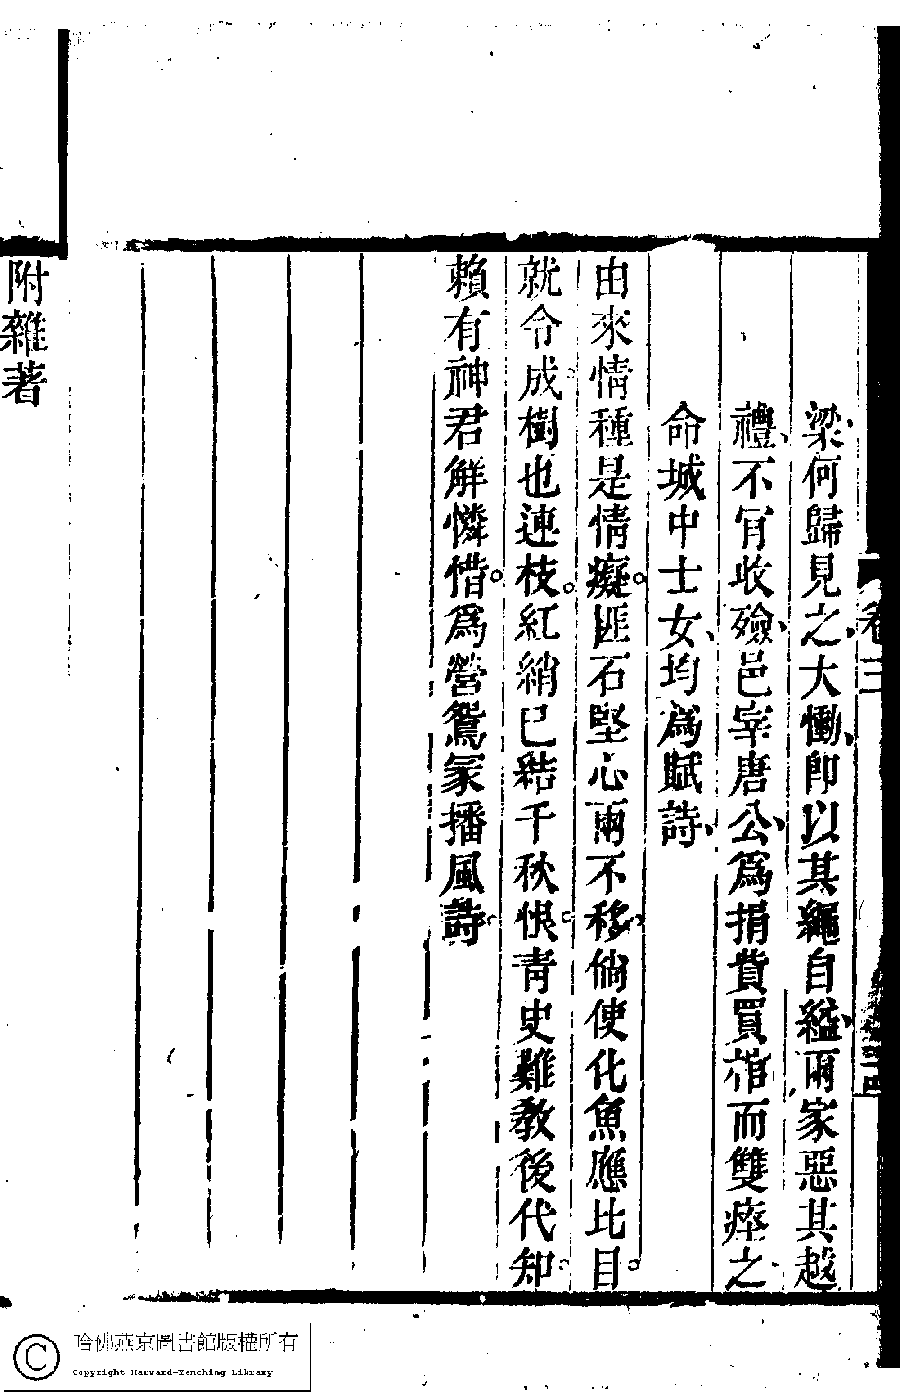 梁何歸見之大慟即以其繩自縊兩家惡其越
禮不肎收殮邑宰唐公爲捐貲買棺而雙瘞之
命城中士女均爲賦詩
由來情種是情癡匪石堅心兩不移倘使化魚應比目
就令成樹也連枝紅綃已結千秋恨青史難教後代知
賴有神君解憐惜爲營鴛冢播風詩
附雜著
卷三
哈佛燕京圖書館版權所有
Copyright Harvard-Yenching Library